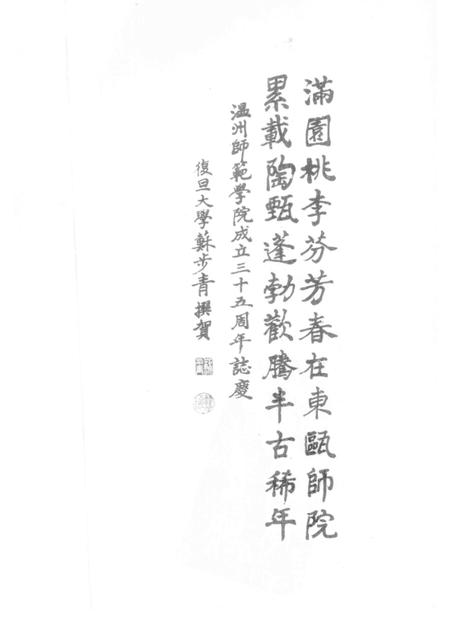 滿園桃李芬芳春在東甌師院
累載陶甄蓬勃歡騰半古稀年
温州師範學院成立三十五周年誌慶
復旦大學蘇步青撰賀